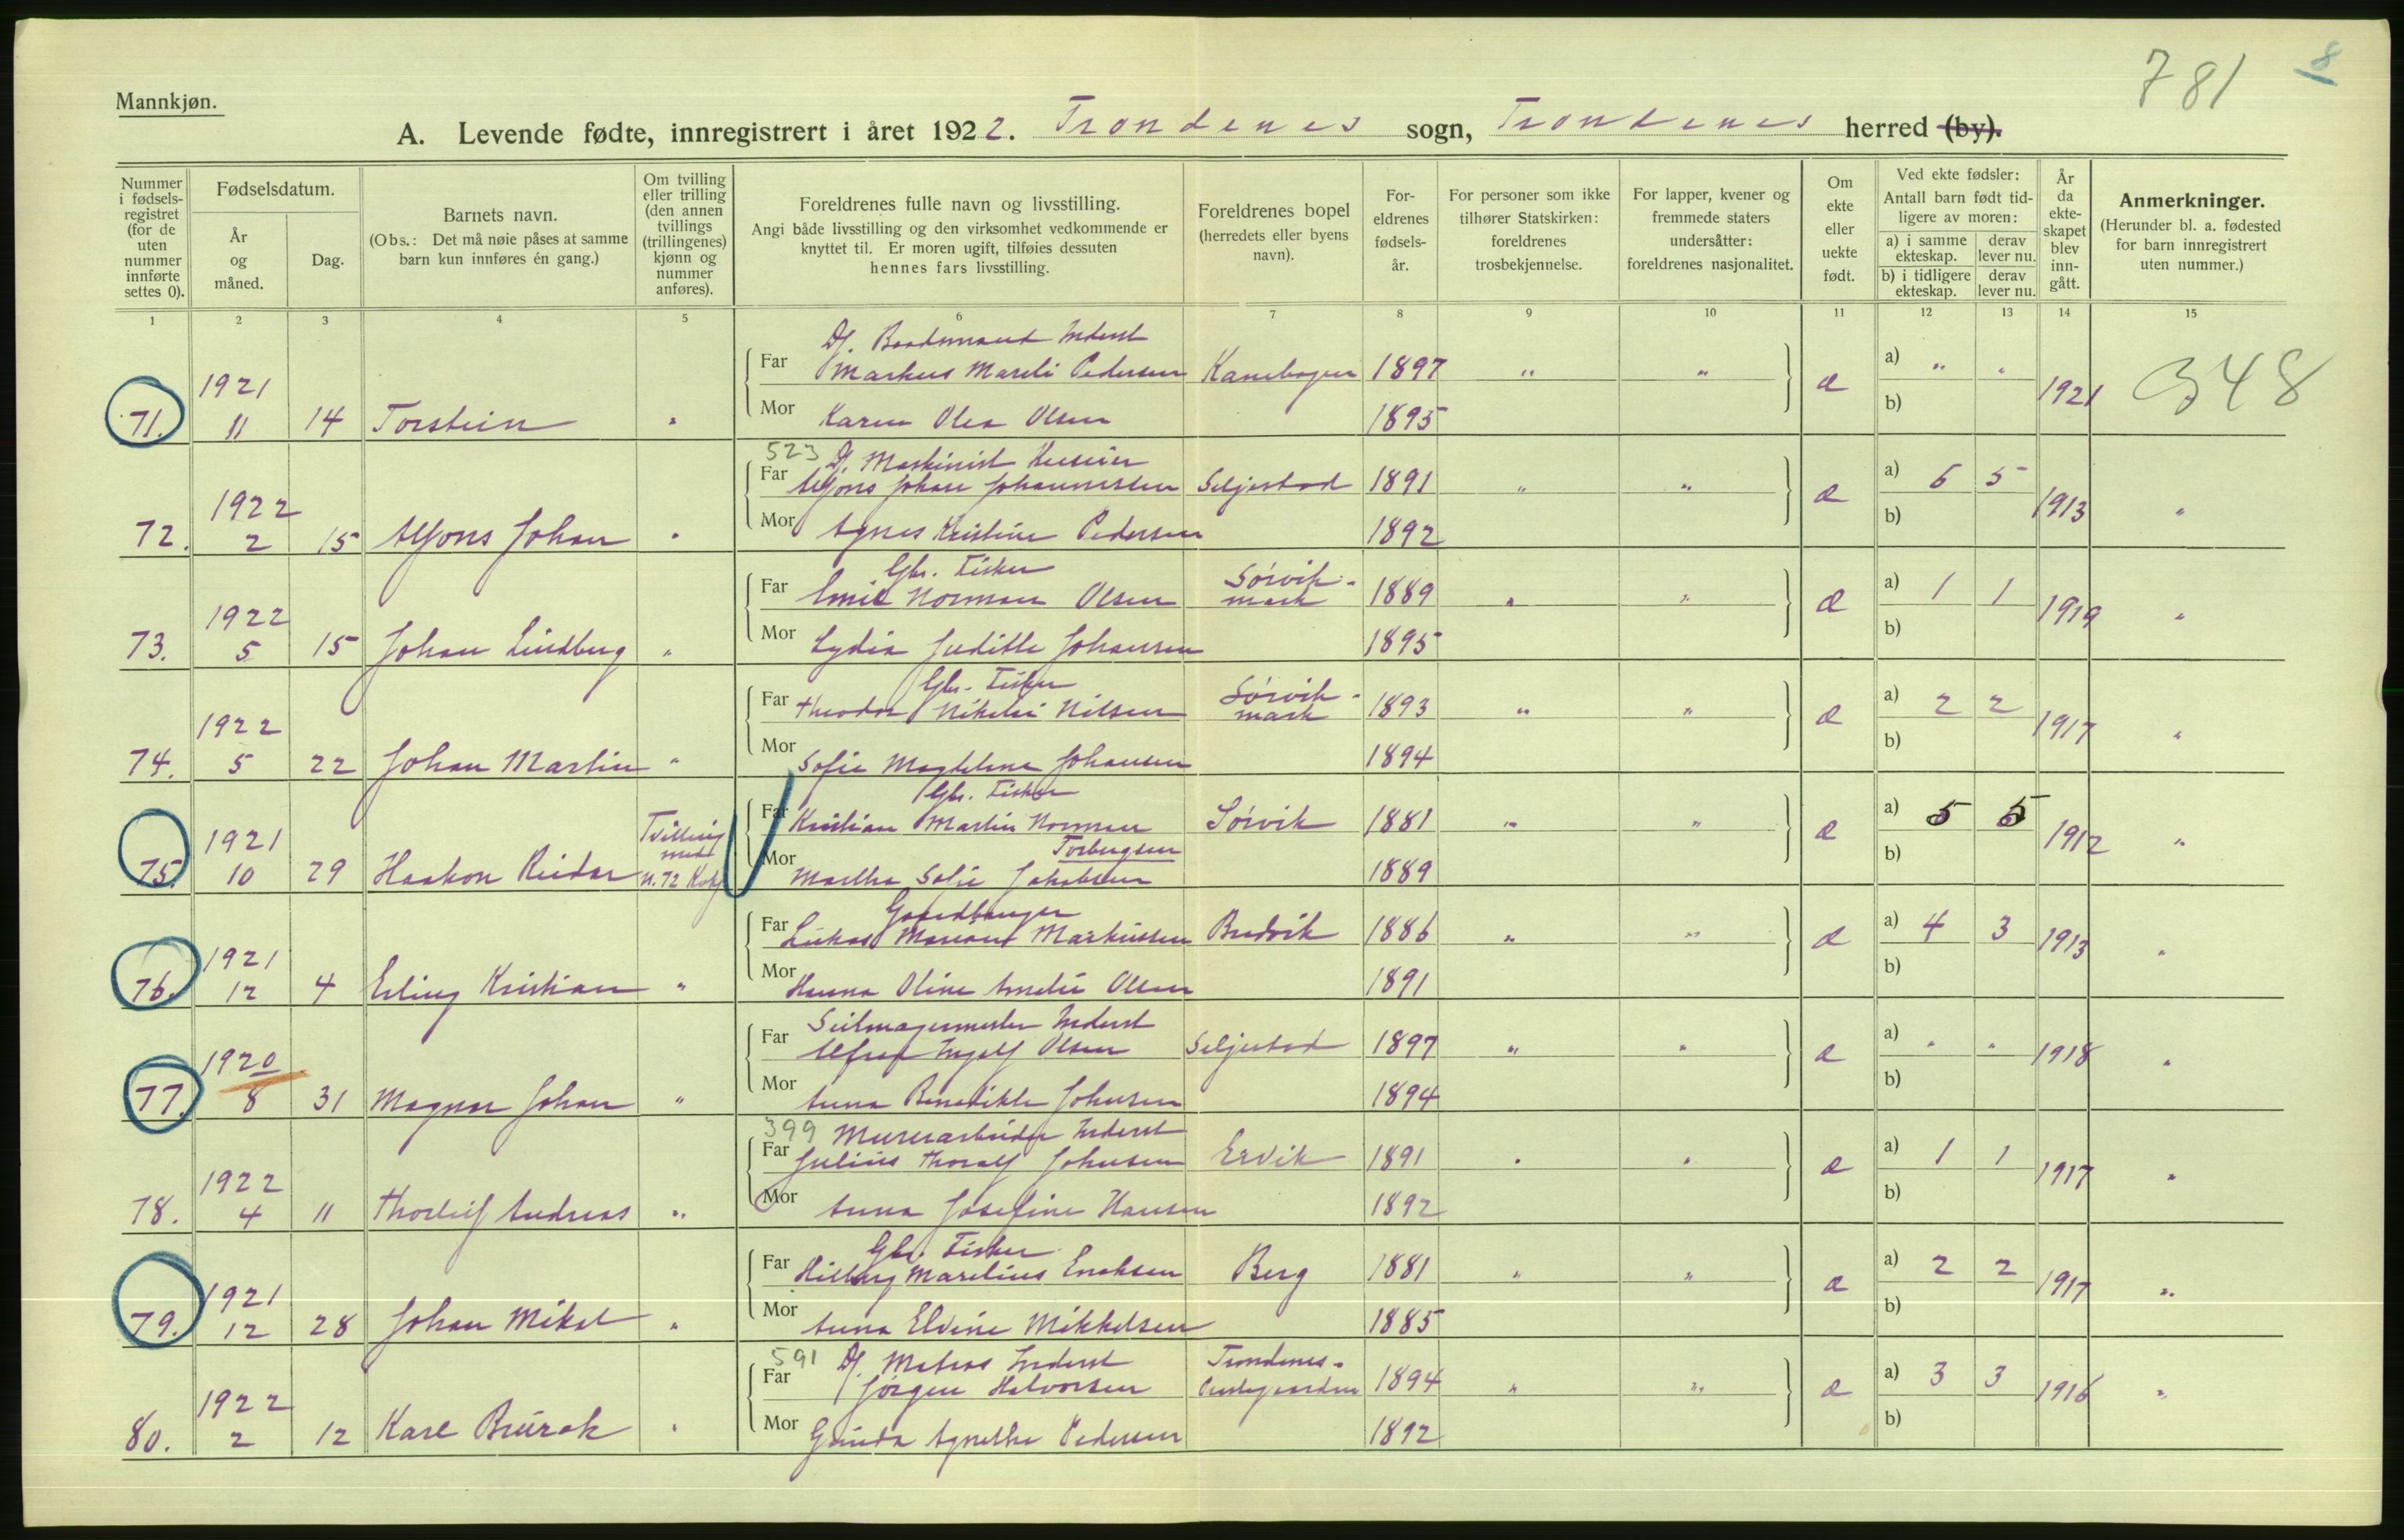 781 8
Mannkjøn.
A. Levende fødte, innregistrert i året 1922. Trondenes sogn, Trondenes herred (by).
Nummer i fødsels-registret (for de uten nummer innførte settes 0).
Fødselsdatum.
År og måned.
Dag.
Barnets navn.
(Obs.: Det må nøie påses at samme barn kun innføres én gang.)
Om tvilling eller trilling (den annen tvillings (trillingenes) kjønn og nummer anføres).
Foreldrenes fulle navn og livsstilling.
Angi både livsstilling og den virksomhet vedkommende er knyttet til. Er moren ugift, tilføies dessuten hennes fars livsstilling.
Foreldrenes bopel (herredets eller byens navn).
For-eldrenes fødsels-år.
For personer som ikke tilhører Statskirken: foreldrenes trosbekjennelse.
For lapper, kvener og fremmede staters undersåtter: foreldrenes nasjonalitet.
Om ekte eller uekte født.
Ved ekte fødsler: Antall barn født tid-ligere av moren:
a) i samme ekteskap. derav lever nu.
b) i tidligere ekteskap. derav lever nu.
År da ekte-skapet blev inn-gått.
Anmerkninger.
(Herunder bl. a. fødested for barn innregistrert uten nummer.)
1 2 3 4 5 6 7 8 9 10 11 12 13 14 15
Inderst
Far Markus Pedersen Kanebogen 1897 " " a) " "
71. 1921 11 14 Torstein " Mor Karen Olea Olsen 1895 æ b) 1921 348
523 Dj. Maskinist
Far Alfons Johan Johannessen Seljestad 1891 " " a) 6 5
72. 1922 2 15 Alfons Johan " Mor Agnes Kristine Pedersen 1892 æ b) 1913 "
Gbr. Fisker
Far Emil Norman Olsen Sørvik-mark 1889 " " a) 1 1
73. 1922 5 15 Johan Lindberg " Mor Lydia Judithe Johansen 1895 æ b) 1919 "
Gbr. Fisker
Far Theodor Nikolai Nilsen Sørvik-mark 1893 " " a) 2 2
74. 1922 5 22 Johan Martin " Mor Sofie Magdelena Johansen 1894 æ b) 1917 "
Gbr. Fisker
Far Kristian Martin Norman Torbergsen Sørvik 1881 " " a) 5 5
75. 1921 10 29 Haakon Reidar Tvilling med n. 72 Mor Martha Sofie Jakobsen 1889 æ b) 1912 "
Gaardbruger
Far Lukas Markussen 1886 " " a) 4 3
76. 1921 12 4 Erling Kristian " Mor Hanna Oline Amelie Olsen 1891 æ b) 1913 "
Seilmagermester Inderst
Far Alfred Ingolf Olsen Seljestad 1897 " " a) " "
77. 1920 8 31 Magnar Johan " Mor Anna Benedikte Johnsen 1894 æ b) 1918 "
399 Murerarbeider Inderst
Far Julius Thoralf Johnsen Ervik 1891 " " a) 1 1
78. 1922 4 11 Thorleif Andreas " Mor Anna Josefine Hansen 1892 æ b) 1917 "
Gbr. Fisker
Far Hilberg Marelius Enoksen Berg 1881 " " a) 2 2
79. 1921 12 28 Johan Mikal " Mor Anna Elvine Mikkelsen 1885 æ b) 1917 "
591 Dj. Matros Inderst
Far Jørgen Halvorsen Trondenes- 1894 " " a) 3 3
80. 1922 2 12 Kare " Mor Agnethe Pedersen 1892 æ b) 1916 "